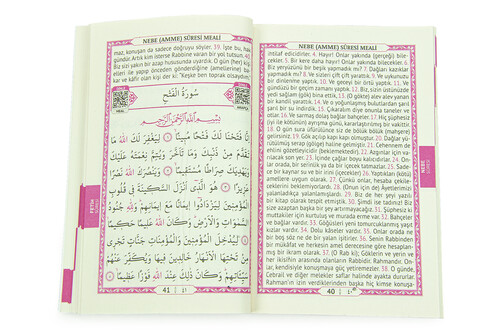 NEBE (AMME) SÛRESİ MEALİ
ihtilaf edicidirler. 4. Hayır! Onlar yakında (gerçeği) bile-
cekler. 5. Bir kere daha hayır! Onlar yakında bilecekler. 6.
Biz yeryüzünü bir beşik yapmadık mı? 7. Dağları kazıklar
yapmadık mı? 8. Ve sizleri çift çift yarattık. 9. Ve uykunuzu
bir dinlenme yaptık. 10. Ve geceyi bir örtü yaptık. 11. Ve
gündüzü bir geçim zamanı yaptık. 12. Biz, sizin üstünüzde
yedi sağlam göğü bina ettik. 13. (O gökte) alev alev yanan
bir kandil yarattık. 14. Ve o yoğunlaşmış bulutlardan şarıl
şarıl bir su indirdik. 15. Çıkaralım diye onunla taneler ve
otlar. 16. Ve sarmaş dolaş bağlar bahçeler. 17. Hiç şüphesiz
(iyi ile kötünün) ayrışma günü, kararlaştırılmış bir vakittir.
18. O gün sura üfürülünce siz de bölük bölük (mahşere)
gelirsiniz. 19. Gök açılıp kapı kapı olmuştur. 20. Dağlar yü-
rütülmüş serap (gölge) haline gelmiştir. 21. Cehennem de
ehlini gözetleyicidir (beklemektedir). 22. Azgınlar için va-
rılacak son yer. 23. İçinde çağlar boyu kalıcıdırlar. 24. On-
lar orada, bir serinlik ya da bir içecek tatmazlar. 25. Sade-
ce bir kaynar su ve bir irini (içecekler). 26. Yaptıkları (kötü)
amellere uygun olarak. 27. Çünkü onlar, hesaba çekile-
ceklerini beklemiyorlardı. 28. (Onun için de) Âyetlerimizi
yalanladıkça yalanlamışlardı. 29. Biz de her şeyi yazılı
bir kitap olarak tespit etmiştik. 30. Şimdi ise tadınız! Biz
size azaptan başka bir şey artırmayacağız. 31. Şüphesiz ki
muttakiler için kurtuluş ve murada erme var. 32. Bahçeler
ve bağlar vardır. 33. Göğüsleri yeni tomurcuklanmış yaşıt
kızlar vardır. 34. Dolu kâseler vardır. 35. Onlar orada ne
bir boş söz ne de bir yalan işitirler. 36. Senin Rabbinden
bir mükâfat ve herkesin amel derecesine göre hesaplan-
mış bir ikram olarak. 37. (O Rab ki); Göklerin ve yerin ve
her ikisi(nin) arasındakilerin Rabbidir. Rahmandır. On-
lar, kendisiyle konuşmaya güç yetiremezler. 38. O günde,
Cebrail ve diğer melekler saflar halinde ayakta dururlar.
Rahman'ın izin verdiklerinden başka hiç kimse konuşa-
40 ٤٠
NEBE
SÛRESİ
NEBE (AMME) SÛRESİ MEALİ
maz, konuşan da sadece doğruyu söyler. 39. İşte bu, hak
gündür. Artık kim isterse Rabbine varan bir yol tutsun. 40.
Biz sizi yakın bir azap hususunda uyardık. O gün (her) kişi
elleri ile yapıp önceden gönderdiğine (amellerine) ba-
kar ve kâfir olan kişi der ki: "Keşke ben toprak olsaydım!"
سُورَةُ الْفَتْحِ
بِسْمِ اللّٰهِ الرَّحْمٰنِ الرَّحِيمِ
اِنَّا فَتَحْنَا لَكَ فَتْحًا مُبِينًا ۝ لِيَغْفِرَ لَكَ اللّٰهُ مَا
تَقَدَّمَ مِنْ ذَنْبِكَ وَمَا تَاَخَّرَ وَيُتِمَّ نِعْمَتَهُ عَلَيْكَ
وَيَهْدِيَكَ صِرَاطًا مُسْتَقِيمًا ۝ وَيَنْصُرَكَ اللّٰهُ نَصْرًا
عَزِيزًا ۝ هُوَ الَّذِي اَنْزَلَ السَّكِينَةَ فِي قُلُوبِ
الْمُؤْمِنِينَ لِيَزْدَادُوا اِيمَانًا مَعَ اِيمَانِهِمْ وَلِلّٰهِ جُنُودُ
السَّمٰوَاتِ وَالْاَرْضِ وَكَانَ اللّٰهُ عَلِيمًا حَكِيمًا
۝ لِيُدْخِلَ الْمُؤْمِنِينَ وَالْمُؤْمِنَاتِ جَنَّاتٍ تَجْرِي
مِنْ تَحْتِهَا الْاَنْهَارُ خَالِدِينَ فِيهَا وَيُكَفِّرَ عَنْهُمْ
سَيِّئَاتِهِمْ وَكَانَ ذٰلِكَ عِنْدَ اللّٰهِ فَوْزًا عَظِيمًا ۝
41 ٤١
FETİH